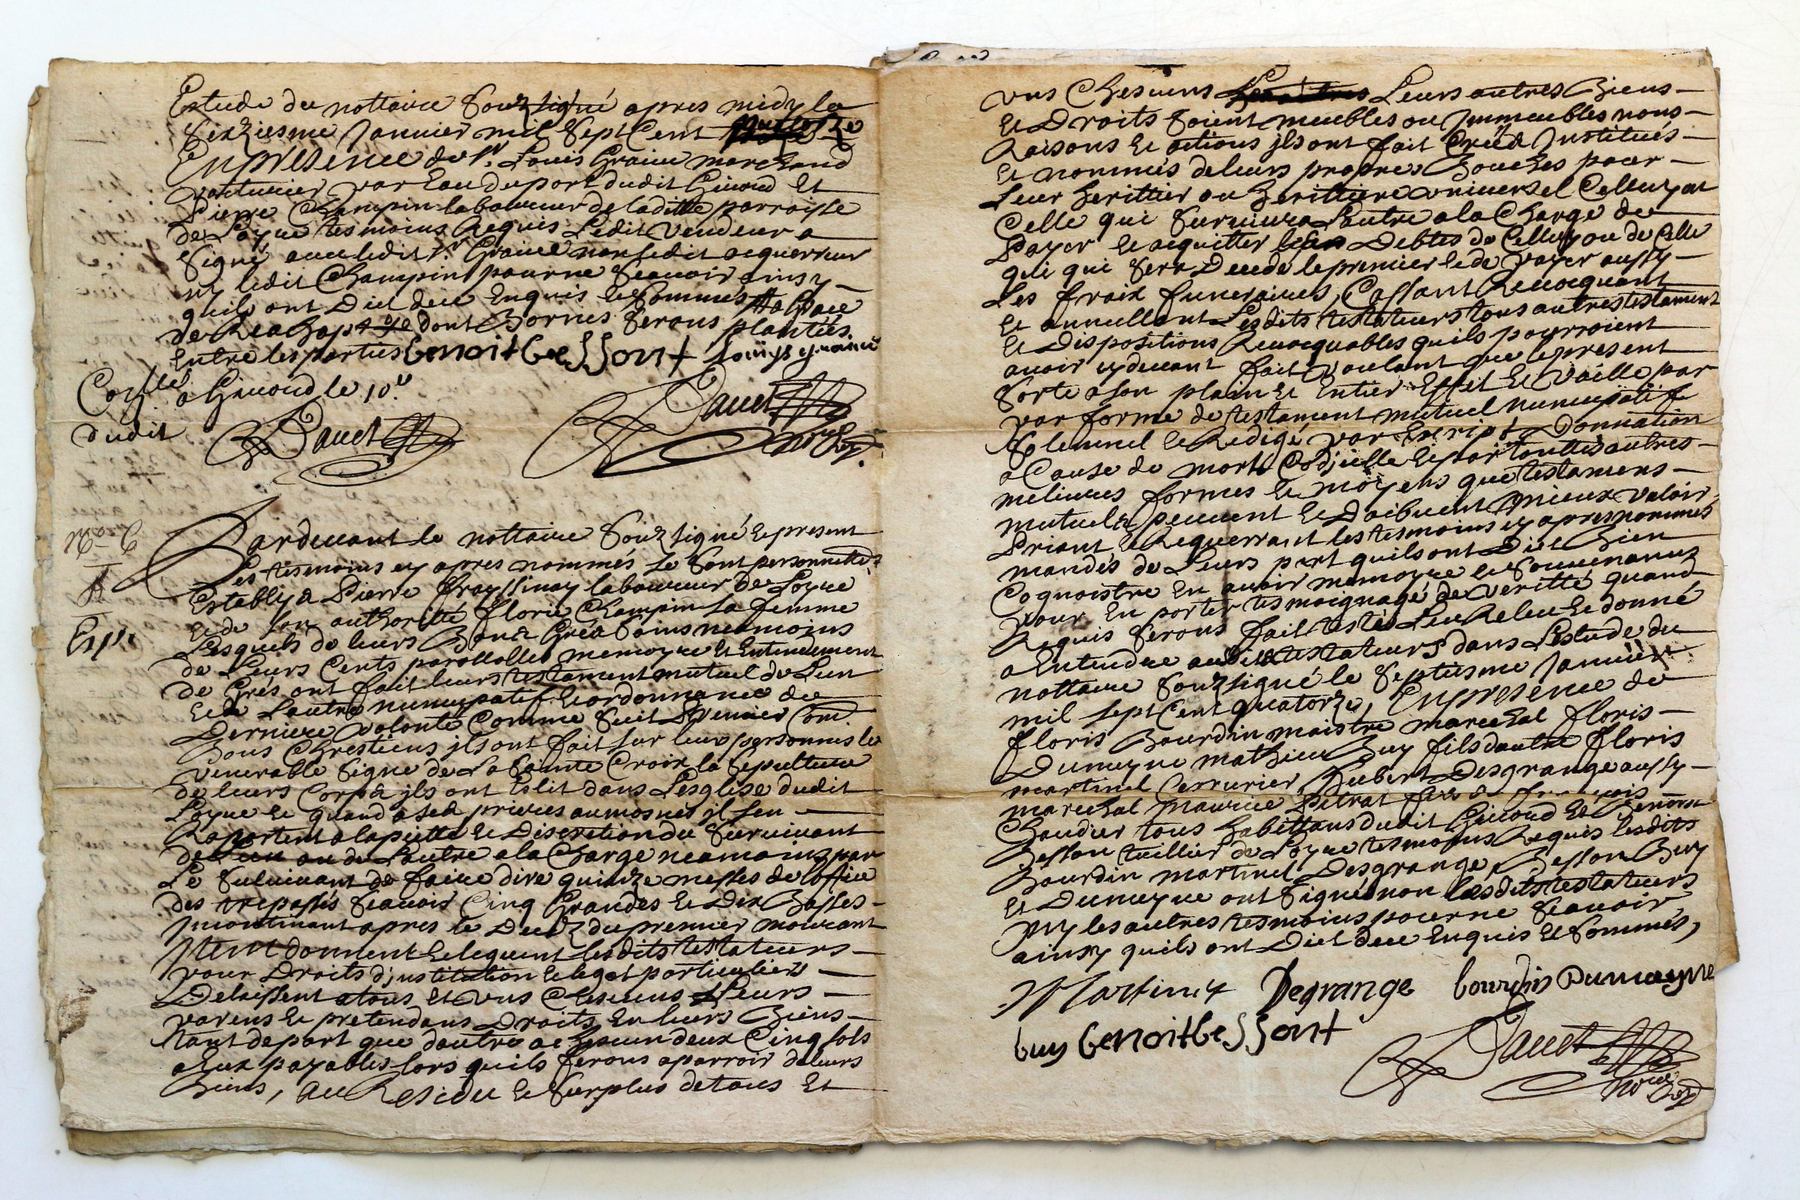 Estude du nottaire Souzsigné apres midy le
Sixziesme Janvier mil Sept Cent quatorze
En presence de Sr. Louis Graine marchand
voiturier par Eau du port dudit Givord Et
Pierre Champin laboureur de laditte parroisse
de Loyre tesmoins Requis Ledit vendeur a
Signé avec ledit Sr. Graine non ledit acquerreur
ny ledit Champin pour ne Scavoir ainsy
quils ont Dict deue Enquis & Sommes
dont Bornes Seront plantées
Entre les parties benoit beSSont Louys graine
Corllé a Givord le 10e.
dudit Dauet Dauet
Pardevant le nottaire Souzsigné & present
Les tesmoins cy apres nommés Se Sont personnelle.
Estably Pierre Frayssinay laboureur de Loyre
& de Son authorité Florie Champin Sa femme
Lesquels de leurs Bons Grés Sains neamoins
de Leurs Cents parolles memoyre Et Entendement
de Gres ont fait leurs testament mutuel de Lun
& de Lautre nuncupatif & ordonnance de
Derniere volonté Comme Suit Premier Com̃
Bons Chrestiens ils ont fait Sur leur personnes le
venerable Signe de La Sainte Croix la Sepulture
de leurs Corps ils ont Eslit dans Lesglise dudit
Loyre & quand a Ses prieres aumosnes il Sen
Raportent a la pietté & Discretion du Survivant
de Lun ou de Lautre a la Charge neamoins par
Le Survivant de faire dire quinze messes de loffice
des trepassés Scavoir Cinq Grandes & Dix Basses
Incontinant apres le Decez du premier mourant
Item donnent & leguent lesdits testateurs
pour Droits d'institution & leget particulier
Delaissent a tous Et uns Chescuns Leurs
parens & pretendans Droits En leurs Biens
tant de part que dautre a Chescun deux Cinq Sols
a Eux payables lors quils Seront aparroir de leurs
Biens, Au Residu & Surplus de tous Et
uns Chescuns Leurs autres Biens
& Droits Soient meubles ou Immeubles noms
Raisons & actions ils ont fait Creé Institués
& nommés de leurs propres Bouches pour
Leur heritier ou heritiere universel Celluy ou
Celle qui Survivra Lautre a la Charge de
Payer & acquitter les Debtes de Celluy ou de Celle
qui Sera Decedé le premier & de payer aussy
Les fraix funeraires, Cassant Revocquant
& annullant Lesdits testateurs tous autres testament
& Dispositions Revocquables quils pourroient
avoir cy devant fait voulant que le present
Sorte a Son plain & Entier Effet & Vaille par
par forme de testament mutuel nuncupatif
Solemnel & Redigé par Escript Donnation
a Cause de mort Codicille & par touttes autres
melieures formes & moyens que testamens
mutuels peuvent & Doibvent mieux valoir
Priant & Requerrant les tesmoins cy apres nommés
mandés de Leurs part quils ont Dict Bien
Cognoistre En avoir memoyre & Souvenance
pour En porter tesmoignage de verité quand
Requis Seront fait testé Leu Releu & donné
a Entendre ausdits testateurs dans Lestude du
nottaire Souzsigné le Septiesme Janvier
mil Sept Cent quatorze, En presence de
floris Bourdin maistre marechal floris
Dumeyne mathieu Buy fils dautre floris
martinet Cerrurier Hubert Desgrange aussy
marechal maurice Pitrat fils de francois
Chaudier tous habittans dudit Givord Et Benoist
Besson tuillier de Loyre tesmoins Requis lesdits
Bourdin martinet Desgrange Besson Buy
Et Dumeyne ont Signé non lesdits testateurs
ny les autres tesmoins pour ne Scavoir
ainsy quils ont Dict deue Enquis & Sommés,
Martinet Degrange bourdin Dumeyne
buy benoit beSSont
Dauet